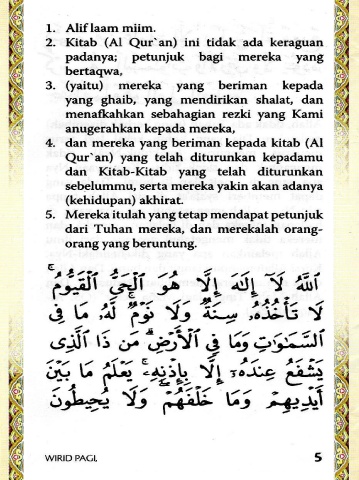 1. Alif laam miim.
2. Kitab (Al Qur`an) ini tidak ada keraguan
padanya; petunjuk bagi mereka yang
bertaqwa,
3. (yaitu) mereka yang beriman kepada
yang ghaib, yang mendirikan shalat, dan
menafkahkan sebahagian rezki yang Kami
anugerahkan kepada mereka,
4. dan mereka yang beriman kepada kitab (Al
Qur`an) yang telah diturunkan kepadamu
dan Kitab-Kitab yang telah diturunkan
sebelummu, serta mereka yakin akan adanya
(kehidupan) akhirat.
5. Mereka itulah yang tetap mendapat petunjuk
dari Tuhan mereka, dan merekalah orang-
orang yang beruntung.
اللَّهُ لَآ إِلَٰهَ إِلَّا هُوَ الْحَيُّ الْقَيُّومُ ۚ
لَا تَأْخُذُهُۥ سِنَةٌ وَلَا نَوْمٌ ۚ لَهُۥ مَا فِى
السَّمَٰوَٰتِ وَمَا فِى الْأَرْضِ ۗ مَن ذَا الَّذِى
يَشْفَعُ عِندَهُۥٓ إِلَّا بِإِذْنِهِۦ ۚ يَعْلَمُ مَا بَيْنَ
أَيْدِيهِمْ وَمَا خَلْفَهُمْ ۖ وَلَا يُحِيطُونَ
WIRID PAGI, 5